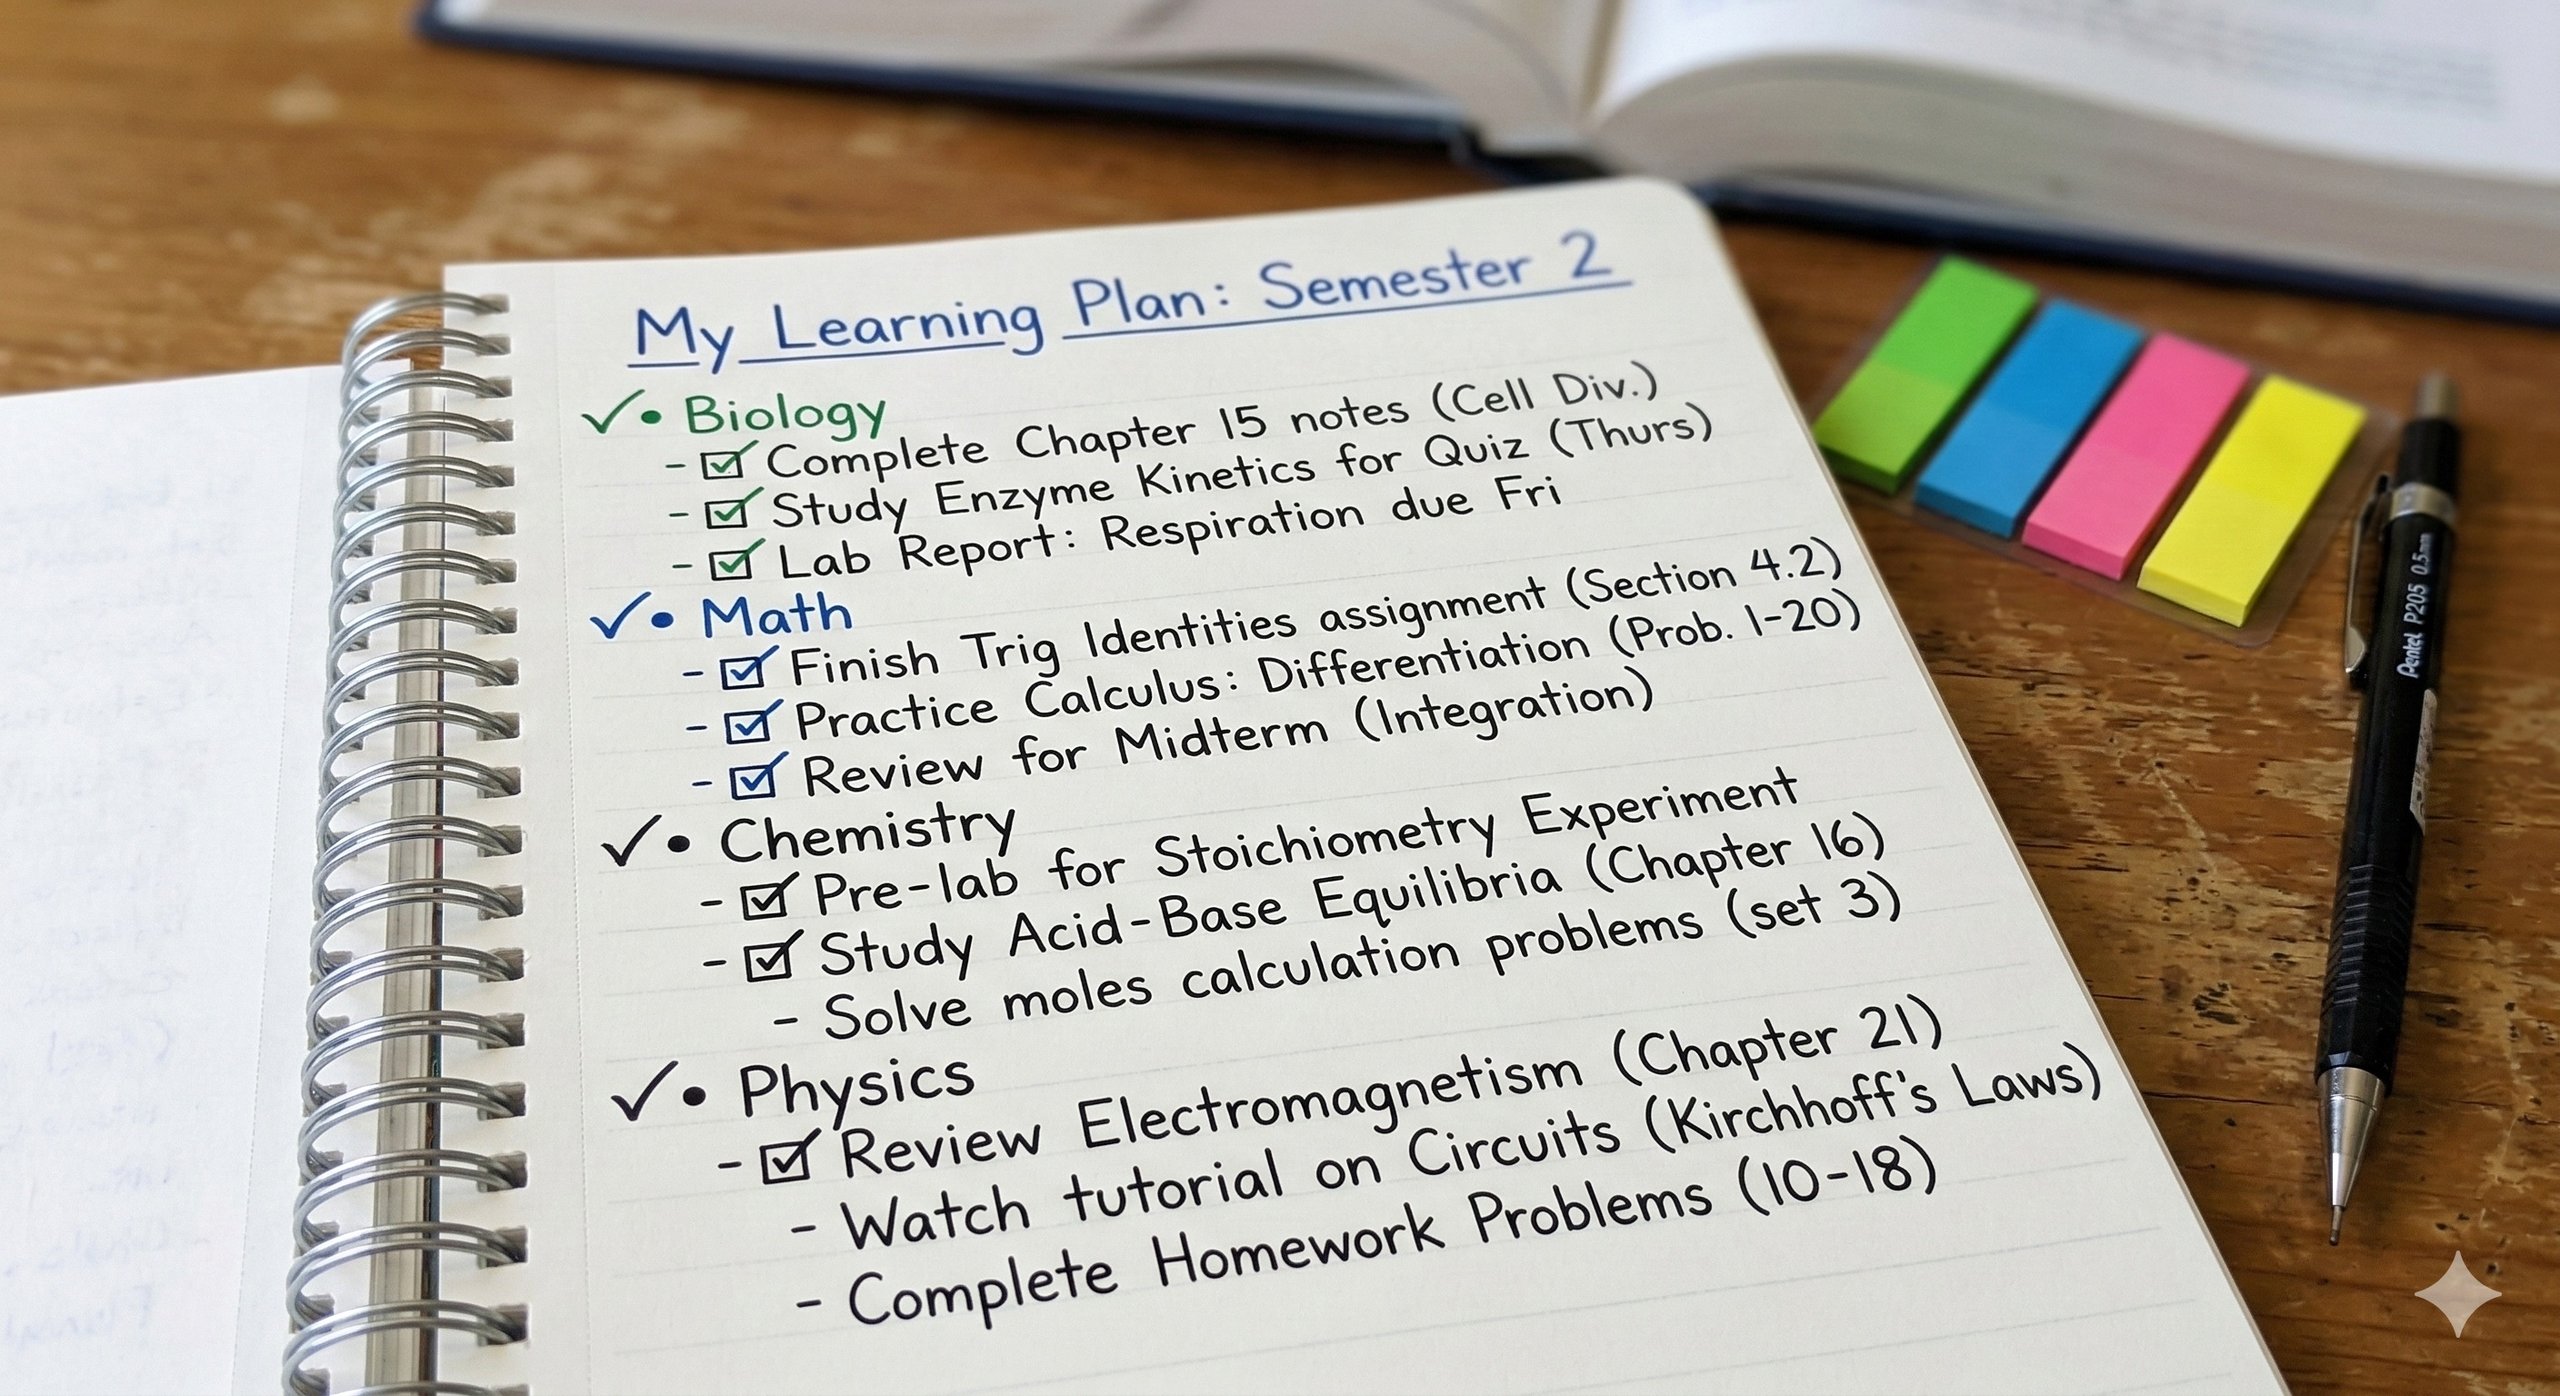 My Learning Plan: Semester 2
✓• Biology
- ☑ Complete Chapter 15 notes (Cell Div.)
- ☑ Study Enzyme Kinetics for Quiz (Thurs)
- ☑ Lab Report: Respiration due Fri
✓• Math
- ☑ Finish Trig Identities assignment (Section 4.2)
- ☑ Practice Calculus: Differentiation (Prob. 1-20)
- ☑ Review for Midterm (Integration)
✓• Chemistry
- ☑ Pre-lab for Stoichiometry Experiment
- ☑ Study Acid-Base Equilibria (Chapter 16)
- Solve moles calculation problems (set 3)
✓• Physics
- ☑ Review Electromagnetism (Chapter 21)
- Watch tutorial on Circuits (Kirchhoff's Laws)
- Complete Homework Problems (10-18)
Pentel P205 0.5mm